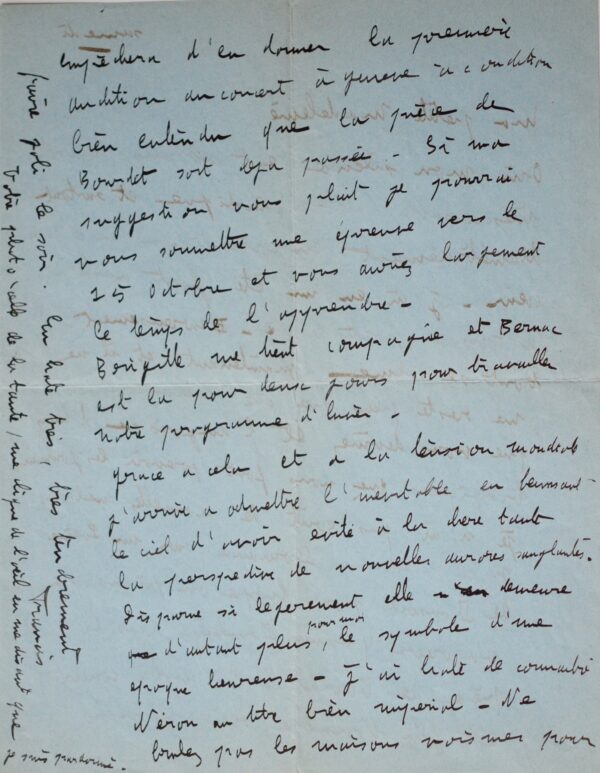 empêchera d'en donner la première
audition au concert à geneve à condition
bien entendu que la pièce de
Bourdet soit deja passée - Si ma
suggestion vous plait je pourrai
vous soumettre une épreuve vers le
15 Octobre et vous auriez largement
le temps de l'apprendre -
Brigitte me tient compagnie et Bernac
est la pour deux jours pour travailler
notre programme d'hiver -
grace a cela et a la tension mondiale
j'arrive a admettre l'inevitable en benissant
le ciel d'avoir evité à la chere tante
la perspective de nouvelles aurores sanglantes.
Disparue si legerement elle demeure
d'autant plus, pour moi, le symbole d'une
epoque heureuse - J'ai hate de connaitre
Néron au titre bien imperial - Ne
brulez pas les maisons voisines pour
faire joli le soir. En hate très, très tendrement
Francis
Votre photo, celle de la tante, me cligne de l'œil en me disant que
je suis pardonné.